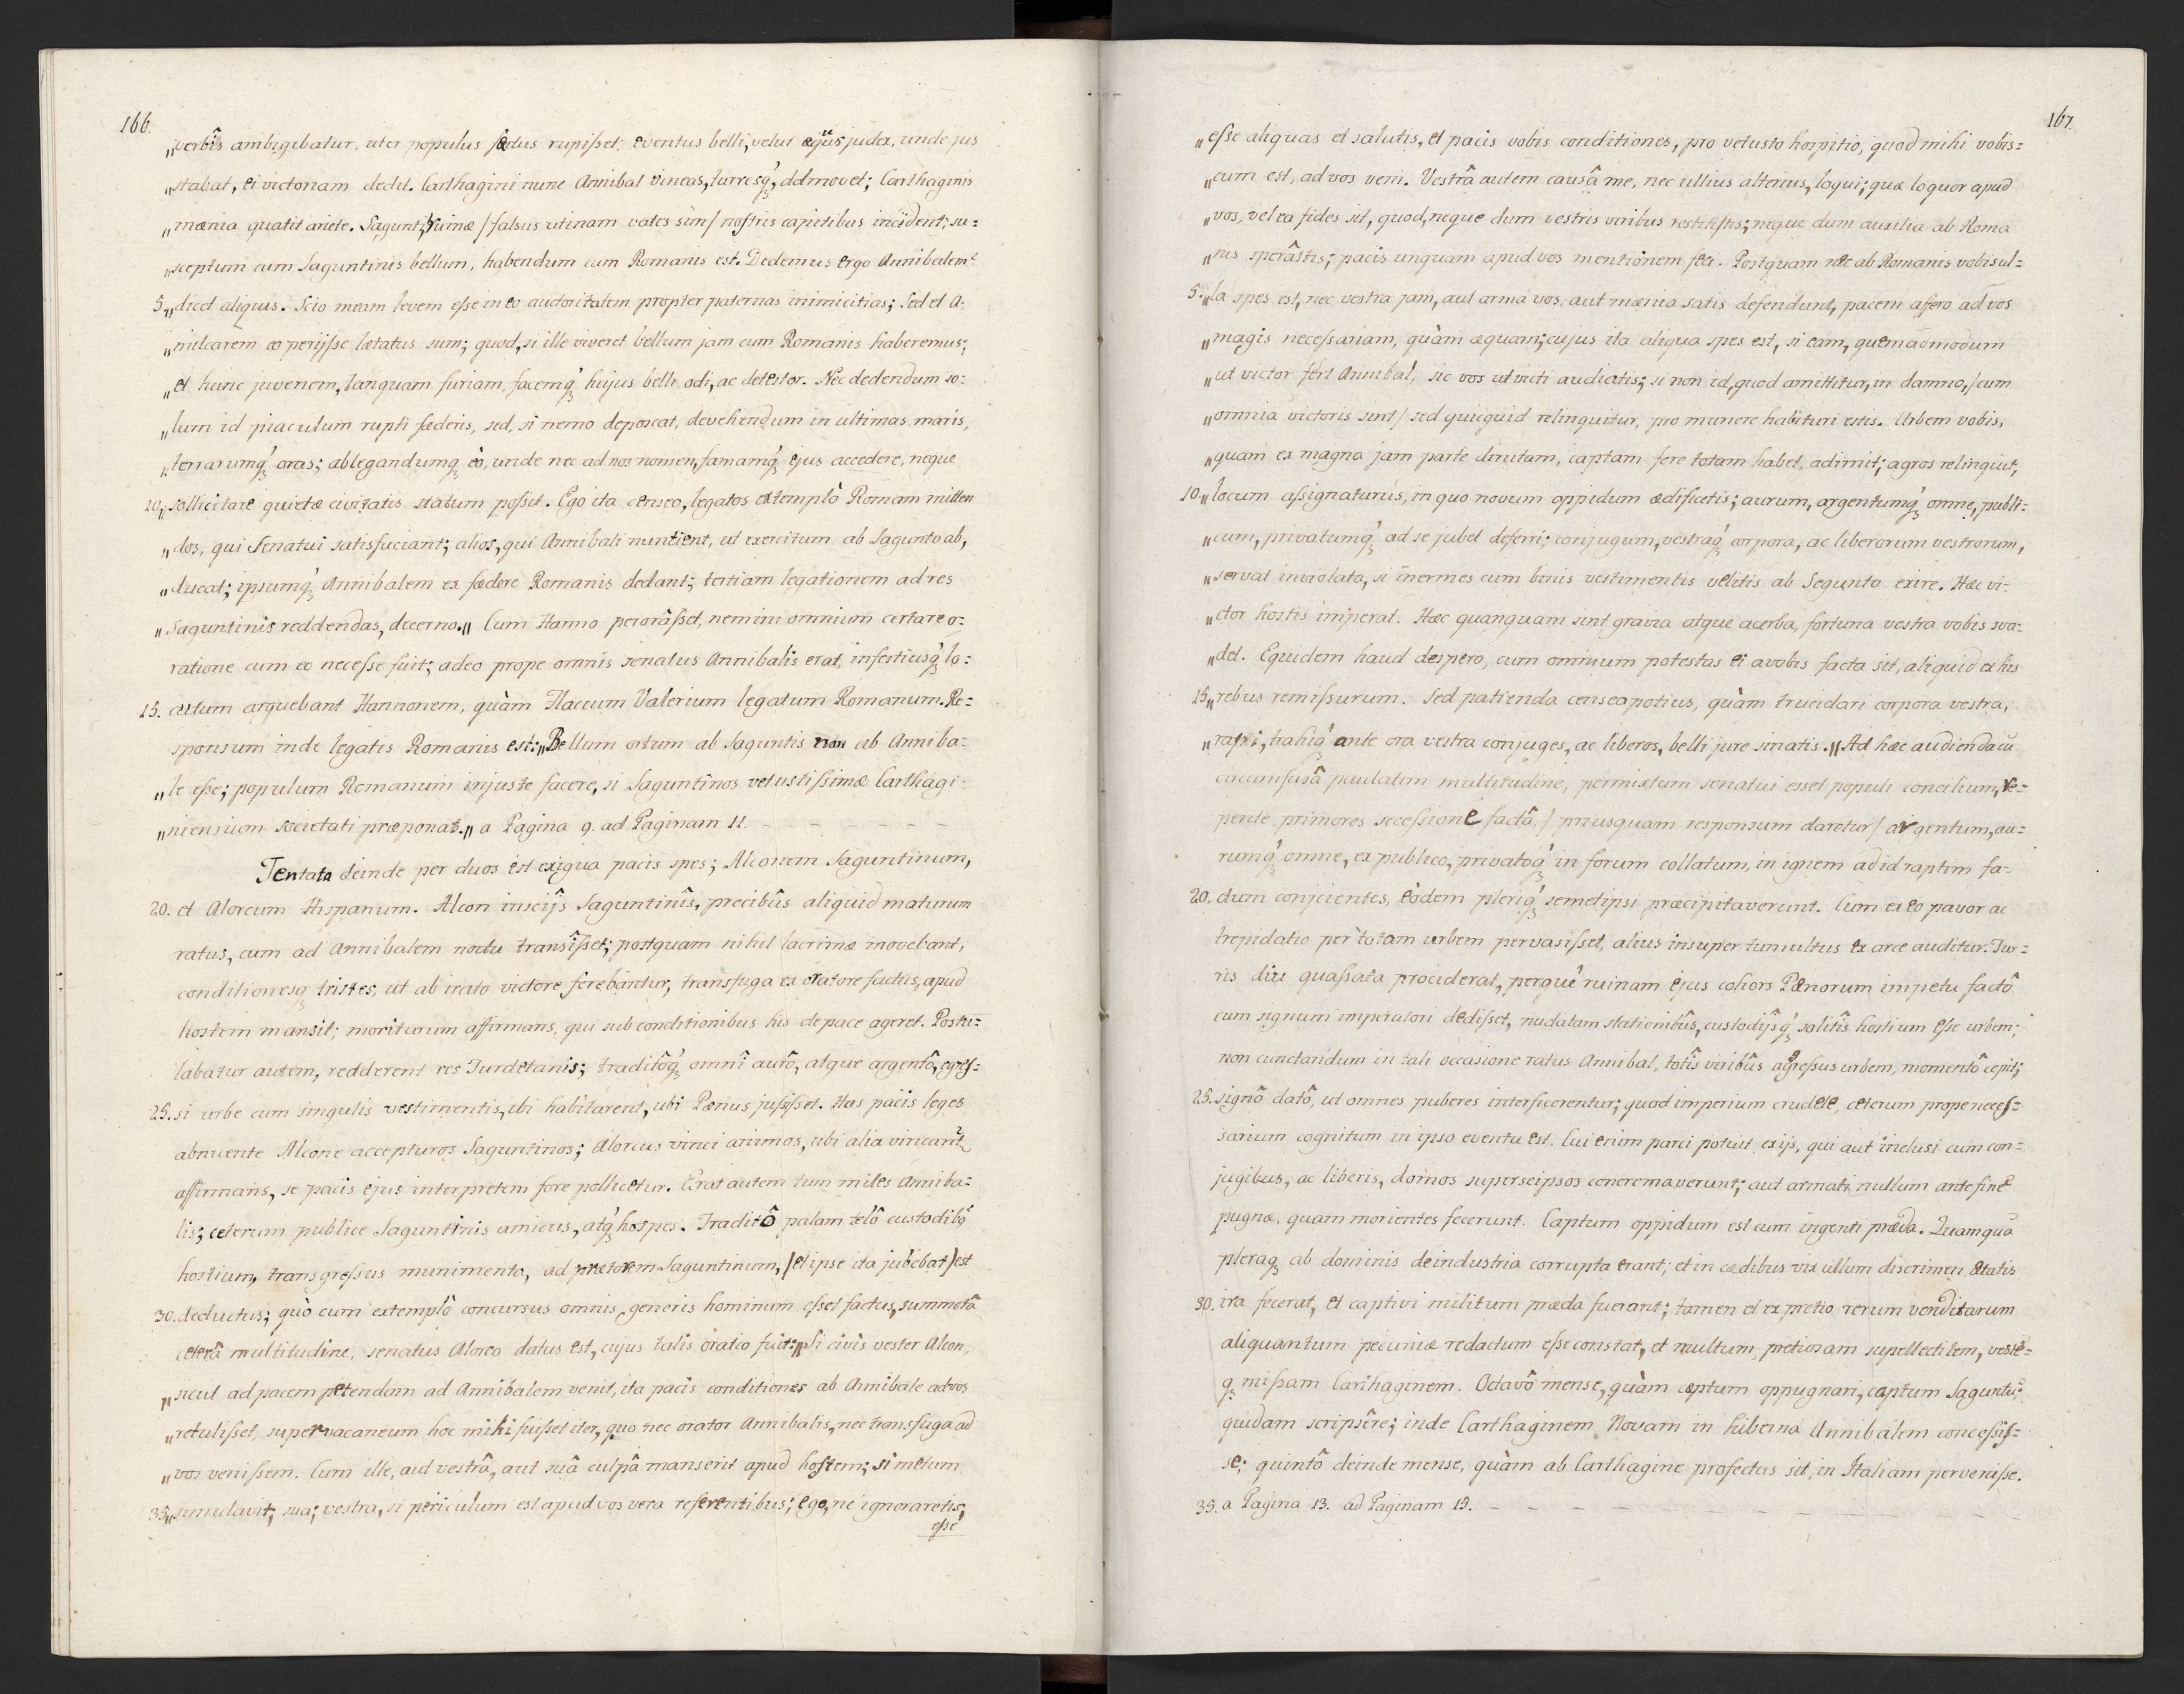 166.
„verbîs ambigebatur, uter populus fœdus rupisset; eventus belli, velut æquus judex, unde jus
„stabat, ei victoriam dedit. Carthagini nunc Annibal vineas, turresq', admovet; Carthaginis
„mænia quatit ariete. Sagunti, ruinæ / falsus utinam vates sim / nostris capitibus incident; su=
„sceptum cum Saguntinis bellum, habendum cum Romanis est. Dedemus ergo Annibalem?
5. „dicet aliquis. Scio meam levem esse in eo auctoritatem propter paternas inimicitias; Sed et A=
„milcarem eo perijsse lætatus sum; quod, si ille viveret bellum jam cum Romanis haberemus;
„et hunc juvenem, tanquam furiam, facemq' hujus belli odi, ac detestor. Nec dedendum so=
„lum id piaculum rupti fæderis, sed, si nemo deposcat, devehendum in ultimas maris,
„terrarumq' oras; ablegandumq eò, unde nec ad nos nomen, famamq' ejus accedere, neque
10. „sollicitare quietæ civitatis statum possit. Ego ita censeo, legatos extemplò Romam mitten
„dos, qui Senatui satisfaciant; alios, qui Annibali nuntient, ut exercitum ab Sagunto ab,
„ducat; ipsumq' Annibalem ex fædere Romanis dedant; tertiam legationem ad res
„Saguntinis reddendas, decerno.„ Cum Hanno perorâsset, nemini omnium certare o=
ratione cum eo necesse fuit; adeo prope omnis senatus Annibalis erat, infestiusq' lo=
15. cutum arguebant Hannonem, quàm Flaccum Valerium legatum Romanum. Re=
sponsum inde legatis Romanis est: „Bellum ortum ab Saguntis non ab Anniba=
„le esse; populum Romanum injuste facere, si Saguntinos vetustissimæ Carthagi=
„niensium societati præponat.„ a Pagina 9. ad Paginam 11. - - - - - -
Tentata deinde per duos est exigua pacis spes; Alconem Saguntinum,
20. et Alorcum Hispanum. Alcon inscijs Saguntinîs, precibûs aliquid maturum
ratus, cum ad Annibalem noctu transîsset; postquam nihil lacrimæ movebant,
conditionesq tristes, ut ab irato victore ferebantur, transfuga ex oratore factus, apud
hostem mansit; moriturum affirmans, qui sub conditionibus his de pace ageret. Postu=
labatur autem, redderent res Turdetanis; traditôq' omnî aurô, atque argentô, egres=
25. si urbe cum singulis vestimentis, ibi habitarent, ubi Pænus jusisset. Has pacis leges
abnuente Alcone accepturos Saguntinos; Alorcus vinci animos, ubi alia vincant
affirmans, se pacis ejus interpretem fore pollicetur. Erat autem tum miles Anniba=
lis; ceterum publice Saguntinis amicus, atq' hospes. Traditô palam telô custodibq'
hostium, transgressus munimenta, ad prætorem Saguntinum, / et ipse ita jubebat / est
30. deductus; quò cum extemplô concursus omnis generis hominum esset factus, summotâ
ceterâ multitudine, senatus Alorco datus est, cujus talis oratio fuit: „Si civis vester Alcon,
„sicut ad pacem petendam ad Annibalem venit, ita pacis conditiones ab Annibale ad vos
„retulisset, supervacaneum hoc mihi fuisset iter, quo nec orator Annibalis, nec transfuga ad
„vos venissem. Cum ille, aut vestrâ, aut suâ culpâ manserit apud hostem; si metum
35. „simulavit; sua; vestra, si periculum est apud vos vera referentibus; ego, ne ignoraretis,
esse
167.
„esse aliquas et salutis, et pacis vobis conditiones, pro vetusto hospitio, quod mihi vobis=
„cum est, ad vos veni. Vestrâ autem causâ me, nec ullius alterius, loqui; quæ loquor apud
„vos, vel ea fides sit, quod, neque dum vestris viribus restitistis; neque dum auxilia ab Roma
„nis sperâstis; pacis unquam apud vos mentionem feci. Postquam nec ab Romanis vobis ul=
5. „la spes est, nec vestra jam, aut arma vos, aut mænia satis defendunt, pacem affero ad vos
„magis necessariam, quàm æquam; cujus ita aliqua spes est, si eam, quemadmodum
„ut victor fert Annibal, sic vos ut victi audiatis; si non id, quod amittitur, in damno, / cum
„omnia victoris sint / sed quicquid relinquitur, pro munere habituri estis. Urbem vobis,
„quam ex magna jam parte dirutam, captam fere totam habet, adimit; agros relinquit,
10. „locum assignaturus, in quo novum oppidum ædificetis; aurum, argentumq' omne, publi=
„cum, privatumq' ad se jubet deferri; conjugum, vestraq' corpora, ac liberorum vestrorum,
„servat inviolata, si inermes cum binis vestimentis velitis ab Segunto exire. Hæc vi=
„ctor hostis imperat. Hæc quanquam sint gravia atque acerba, fortuna vestra vobis sva=
„det. Equidem haud despero, cum omnium potestas ei a vobis facta sit, aliquid ex his
15. „rebus remissurum. Sed patienda censeo potius, quàm trucidari corpora vestra,
„rapi, trahiq' ante ora vestra conjuges, ac liberos, belli jure sinatis.„ Ad hæc audienda cū
circumfusâ paulatim multitudine, permixtum senatui esset populi concilium, re=
pente primores secessione factâ / priusquam responsum daretur / argentum, au=
rumq' omne, ex publico, privatoq' in forum collatum, in ignem ad id raptim fa=
20. ctum conjicientes, eòdem pleriq' semetipsi præcipitaverunt. Cum ex eo pavor ac
trepidatio per totam urbem pervasisset, alius insuper tumultus ex arce auditur. Tur=
ris diu quassata prociderat, perque ruinam ejus cohors Pænorum impetu factô
cum signum imperatori dedisset, nudatam stationibûs, custodijsq' solitîs hostium esse urbem;
non cunctandum in tali occasione ratus Annibal, totîs viribûs aggressus urbem, momentô cepit;
25. signô datô, ut omnes puberes interficerentur; quod imperium crudele, ceterum prope neces=
sarium cognitum in ipso eventu est. Cui enim parci potuit exijs, qui aut inclusi cum con=
jugibus, ac liberis, domos super seipsos concremaverunt; aut armati nullum ante finē
pugnæ, quam morientes fecerunt. Captum oppidum est cum ingenti præda. Quamquā
pleraq ab dominis de industria corrupta erant; et in cædibus vix ullum discrimen ætatis
30. ira fecerat, et captivi militum præda fuerant; tamen et ex pretio rerum venditarum
aliquantum pecuniæ redactum esse constat, et multum pretiosam supellectilem, vestē=
q missam Carthaginem. Octavô mense, quàm cæptum oppugnari, captum Saguntū;
quidam scripsêre; inde Carthaginem Novam in hiberna Annibalem concessis=
se; quintô deinde mense, quàm ab Carthagine profectus sit, in Italiam pervenisse.
35. a Pagina 13. ad Paginam 15. - - - - - - - - -